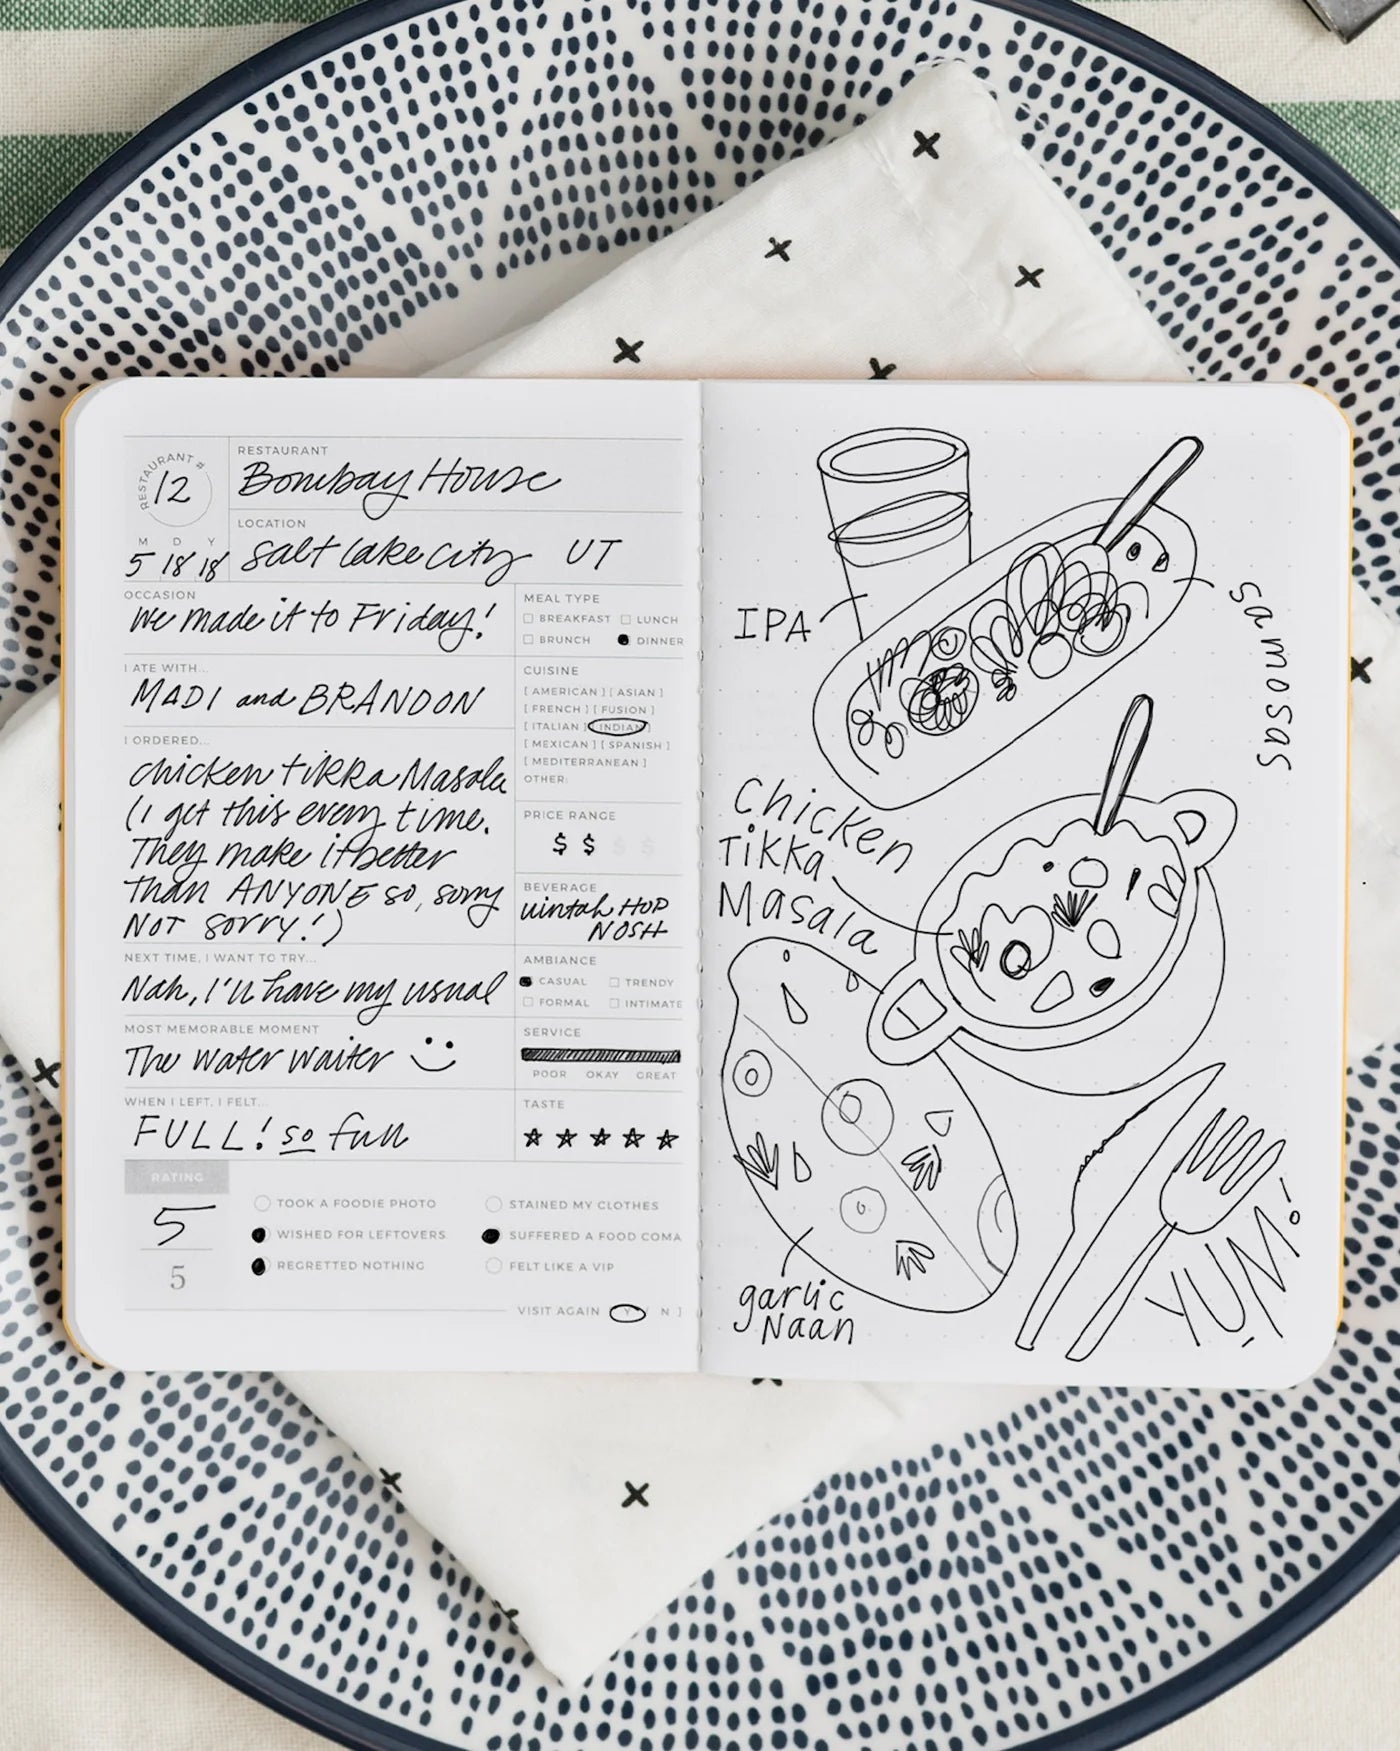 RESTAURANT #
12
RESTAURANT
Bombay House
LOCATION
Salt Lake City UT
M D Y
5 18 18
OCCASION
We made it to Friday!
I ATE WITH...
MADI and BRANDON
I ORDERED...
Chicken Tikka Masala
(I get this every time.
They make it better
than ANYONE so, sorry
NOT SORRY!)
NEXT TIME, I WANT TO TRY...
Nah, I'll have my usual
MOST MEMORABLE MOMENT
The Water Waiter
WHEN I LEFT, I FELT...
FULL! so full
MEAL TYPE
BREAKFAST LUNCH
BRUNCH DINNER
CUISINE
[ AMERICAN ] [ ASIAN ]
[ FRENCH ] [ FUSION ]
[ ITALIAN ] [ INDIAN ]
[ MEXICAN ] [ SPANISH ]
[ MEDITERRANEAN ]
OTHER:
PRICE RANGE
$ $ $ $
BEVERAGE
Uintah HOP
NOSH
AMBIANCE
CASUAL TRENDY
FORMAL INTIMATE
SERVICE
POOR OKAY GREAT
TASTE
RATING
5
5
TOOK A FOODIE PHOTO STAINED MY CLOTHES
WISHED FOR LEFTOVERS SUFFERED A FOOD COMA
REGRETTED NOTHING FELT LIKE A VIP
VISIT AGAIN [ Y / N ]
IPA
Samosas
Chicken
Tikka
Masala
garlic
Naan
YUM!